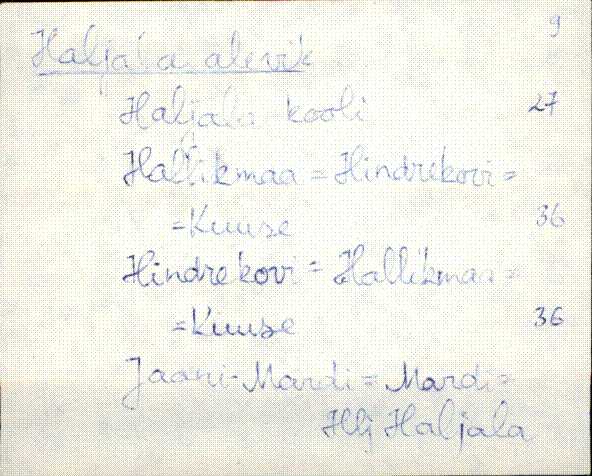 9
Haljala alevik
Haljala kooli 27
Hallikmaa = Hindrekovi =
= Kuuse 36
Hindrekovi = Hallikmaa =
= Kuuse 36
Jaani-Mardi = Mardi =
Hlj Haljala